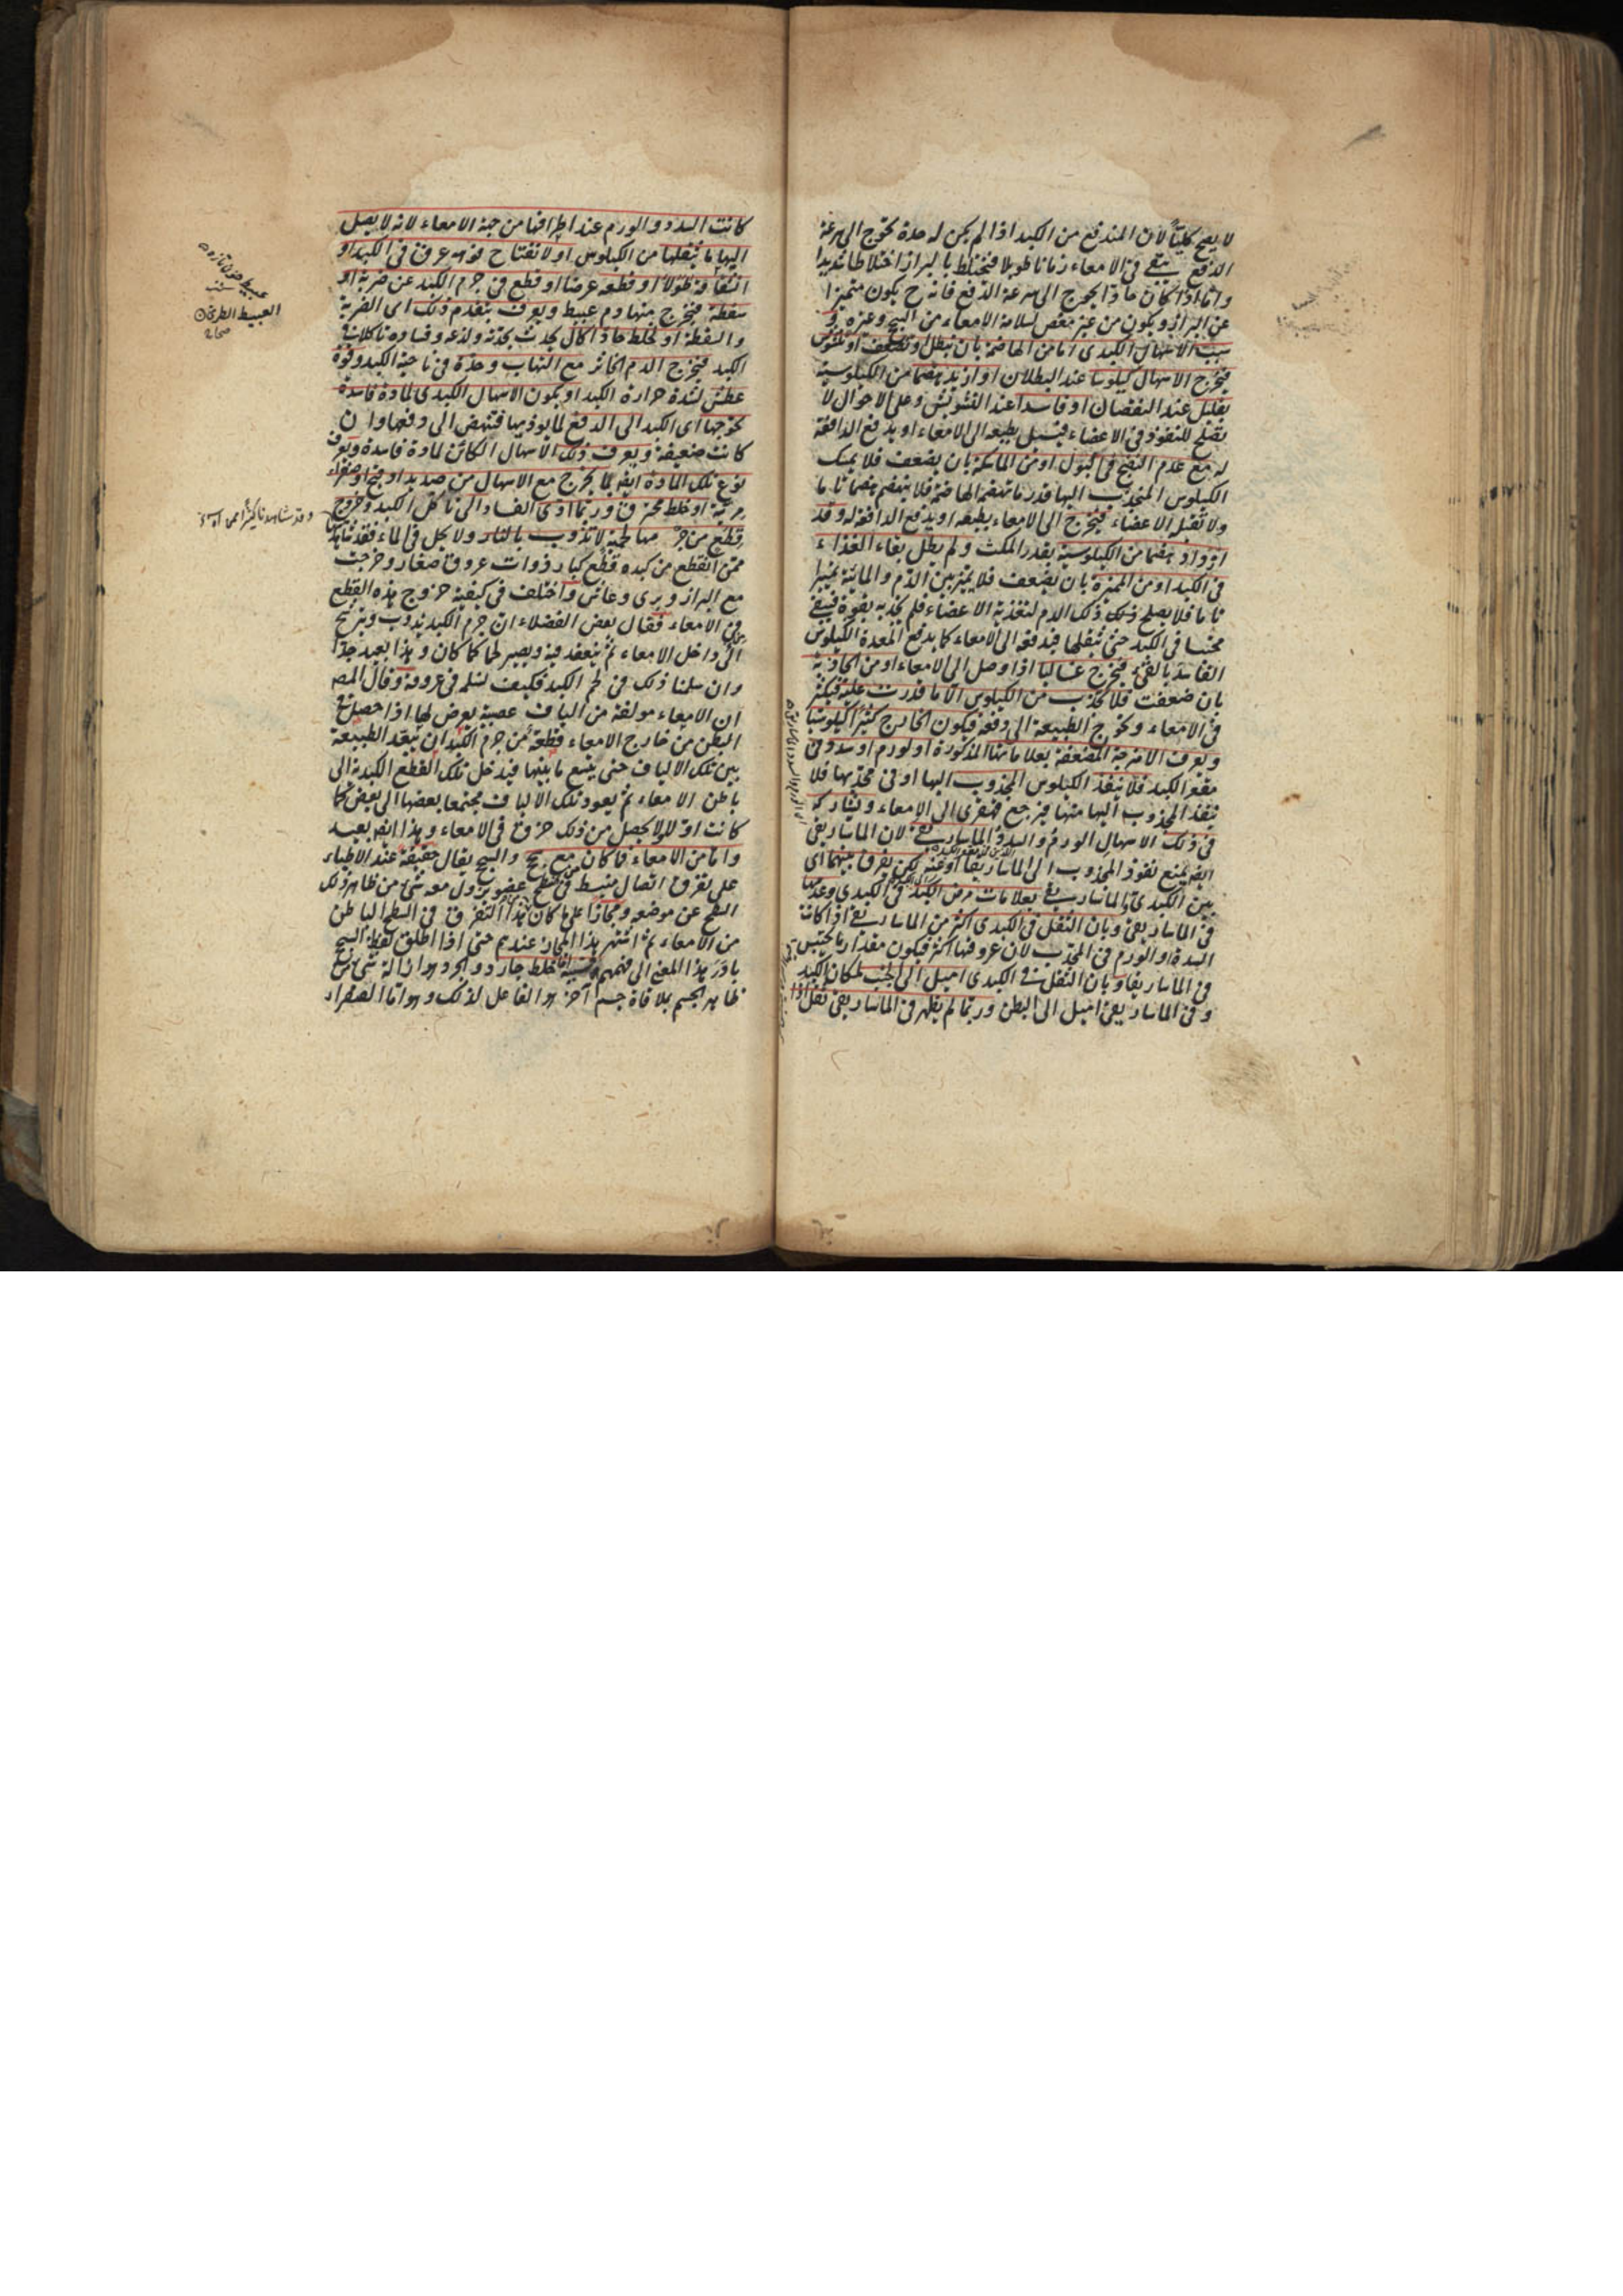 لا يصح كليا لان المندفع من الكبد اذا لم يكن له حدة تحوج الى سرعة
الدفع يبقى فى الامعاء زمانا طويلا فيختلط بالبراز اختلاطا شديدا
واما اذا كان حادا يحوج الى سرعة الدفع فانه ح يكون متميزا
عن البراز ويكون من غير مغص لسلامة الامعاء من السحج وغيره و
سبب الاسهال الكبدى اما من الهاضمة بان تبطل او تضعف او تشوش
فيخرج الاسهال كيلوسا عند البطلان او ازيد هضما من الكيلوسية
بقليل عند النقصان او فاسدا عند التشويش وعلى الاحوال لا
يصلح للنفوذ فى الاعضاء فيسيل بطبعه الى الامعاء او يدفع الدافعة
له مع عدم النضج فى البول او من الماسكة بان يضعف فلا يمسك
الكيلوس المنجذب اليها قدر ما تهضمه الهاضمة فلا ينهضم هضما تاما
ولا تقبله الاعضاء فيخرج الى الامعاء بطبعه او يدفع الدافعة له وقد
ازداد هضما من الكيلوسية بقدر المكث ولم يطل بقاء الغذاء
فى الكبد او من المميزة بان يضعف فلا يميز بين الدم والمائية تمييزا
تاما فلا يصلح ذلك الدم لتغذية الاعضاء فلم تجذبه بقوة فيبقى
محتبسا فى الكبد حتى يثقلها فيدفعه الى الامعاء كما يدفع المعدة الكيلوس
الفاسد بالقئ فيخرج غساليا اذا وصل الى الامعاء او من الجاذبة
بان ضعفت فلا تجذب من الكيلوس الا ما قدرت عليه فيكثر
فى الامعاء ويحوج الطبيعة الى دفعه فيكون الخارج كثيرا كيلوسيا
ويعرف الامزجة المضعفة بعلاماتها المذكورة او لورم او سدد فى
مقعر الكبد فلا ينفذ الكيلوس المجذوب اليها او فى محدبها فلا
ينفذ المجذوب اليها منها فيرجع قهقرى الى الامعاء ويشاركه
فى ذلك الاسهال الورم والسدة الماساريقى لان الماساريقى
ايضا يمنع نفوذ المجذوب الى الماساريقا او عنه لكن يفرق بينهما اى
بين الكبدى والماساريقى بعلامات مرض الكبد فى الكبدى وعدمها
فى الماساريقى وبان الثقل فى الكبدى اكثر من الماساريقى اذا كانت
السدة او الورم فى المحدب لان عروقها اكثر فيكون مقدار ما يحتبس
فى الماساريقا وبان الثقل فى الكبدى اميل الى الجنب لمكان الكبد
وفى الماساريقى اميل الى البطن وربما لم يظهر فى الماساريقى ثقل اذا
كانت السدد والورم عند اطرافها من جهة الامعاء لانه لا يصل
اليها ما يثقلها من الكيلوس او لانفتاح فوهة عرق فى الكبد او
انشقاقه طولا او قطعه عرضا او قطع فى جرم الكبد عن ضربة او
سقطة فيخرج منها دم عبيط ويعرف بتقدم ذلك اى الضربة
والسقطة او لخلط حاد اكال يحدث بحدته ولذعه وفساده تاكلا فى
الكبد فيخرج الدم الخاثر مع التهاب وحدة فى ناحية الكبد وقوة
عطش لشدة حرارة الكبد او يكون الاسهال الكبدى لمادة فاسدة
تحوجها اى الكبد الى الدفع لما يوذيها فتنهض الى دفعها وان
كانت ضعيفة ويعرف ذلك الاسهال الكائن لمادة فاسدة ويعرف
نوع تلك المادة ايضا بما يخرج مع الاسهال من صديد او قيح او صفراء
مرية او خلط محترق وربما ادى الفساد الى تاكل الكبد وخروج
قطع من جرمها لحمية لا تذوب بالنار ولا يحل فى الماء فقد شاهدنا
ممن انقطع من كبده قطع كبار ذوات عروق صغار وخرجت
مع البراز وبرى وعاش واختلف فى كيفية خروج هذه القطع
من الامعاء فقال بعض الفضلاء ان جرم الكبد يذوب ويترشح
الى داخل الامعاء ثم ينعقد فيه ويصير لحما كما كان وهذا بعيد جدا
وان سلمنا ذلك فى لحم الكبد فكيف نسلم فى عروقه وقال المص
ان الامعاء مولفة من الياف عصبية يعرض لها اذا حصل فى
البطن من خارج الامعاء قطعة من جرم الكبد ان تبعد الطبيعة
بين تلك الالياف حتى يتسع ما بينها فيدخل تلك القطع الكبدية الى
باطن الامعاء ثم يعود تلك الالياف مجتمعا بعضها الى بعض كما
كانت اولا ولا يحصل من ذلك خرق فى الامعاء وهذا ايضا بعيد
واما من الامعاء فاما كان مع سحج والسحج يقال حقيقة عند الاطباء
على تفرق اتصال منبسط فى سطح عضو يزول معه شئ من ظاهر ذلك
السطح عن موضعه ومجازا على ما كان هذا التفرق فى السطح الباطن
من الامعاء ثم اشتهر هذا المجاز عندهم حتى اذا اطلق لفظ السحج
بادر هذا المعنى الى فهمهم وسببه اما خلط جارد والجرد هو ازالة شئ من
ظاهر الجسم بملاقاة جسم آخر هو الفاعل لذلك وهو اما الصفراء
عبيط خون تازه
العبيط الطرى
صحاح
وقد شاهدنا كثيرا ممن